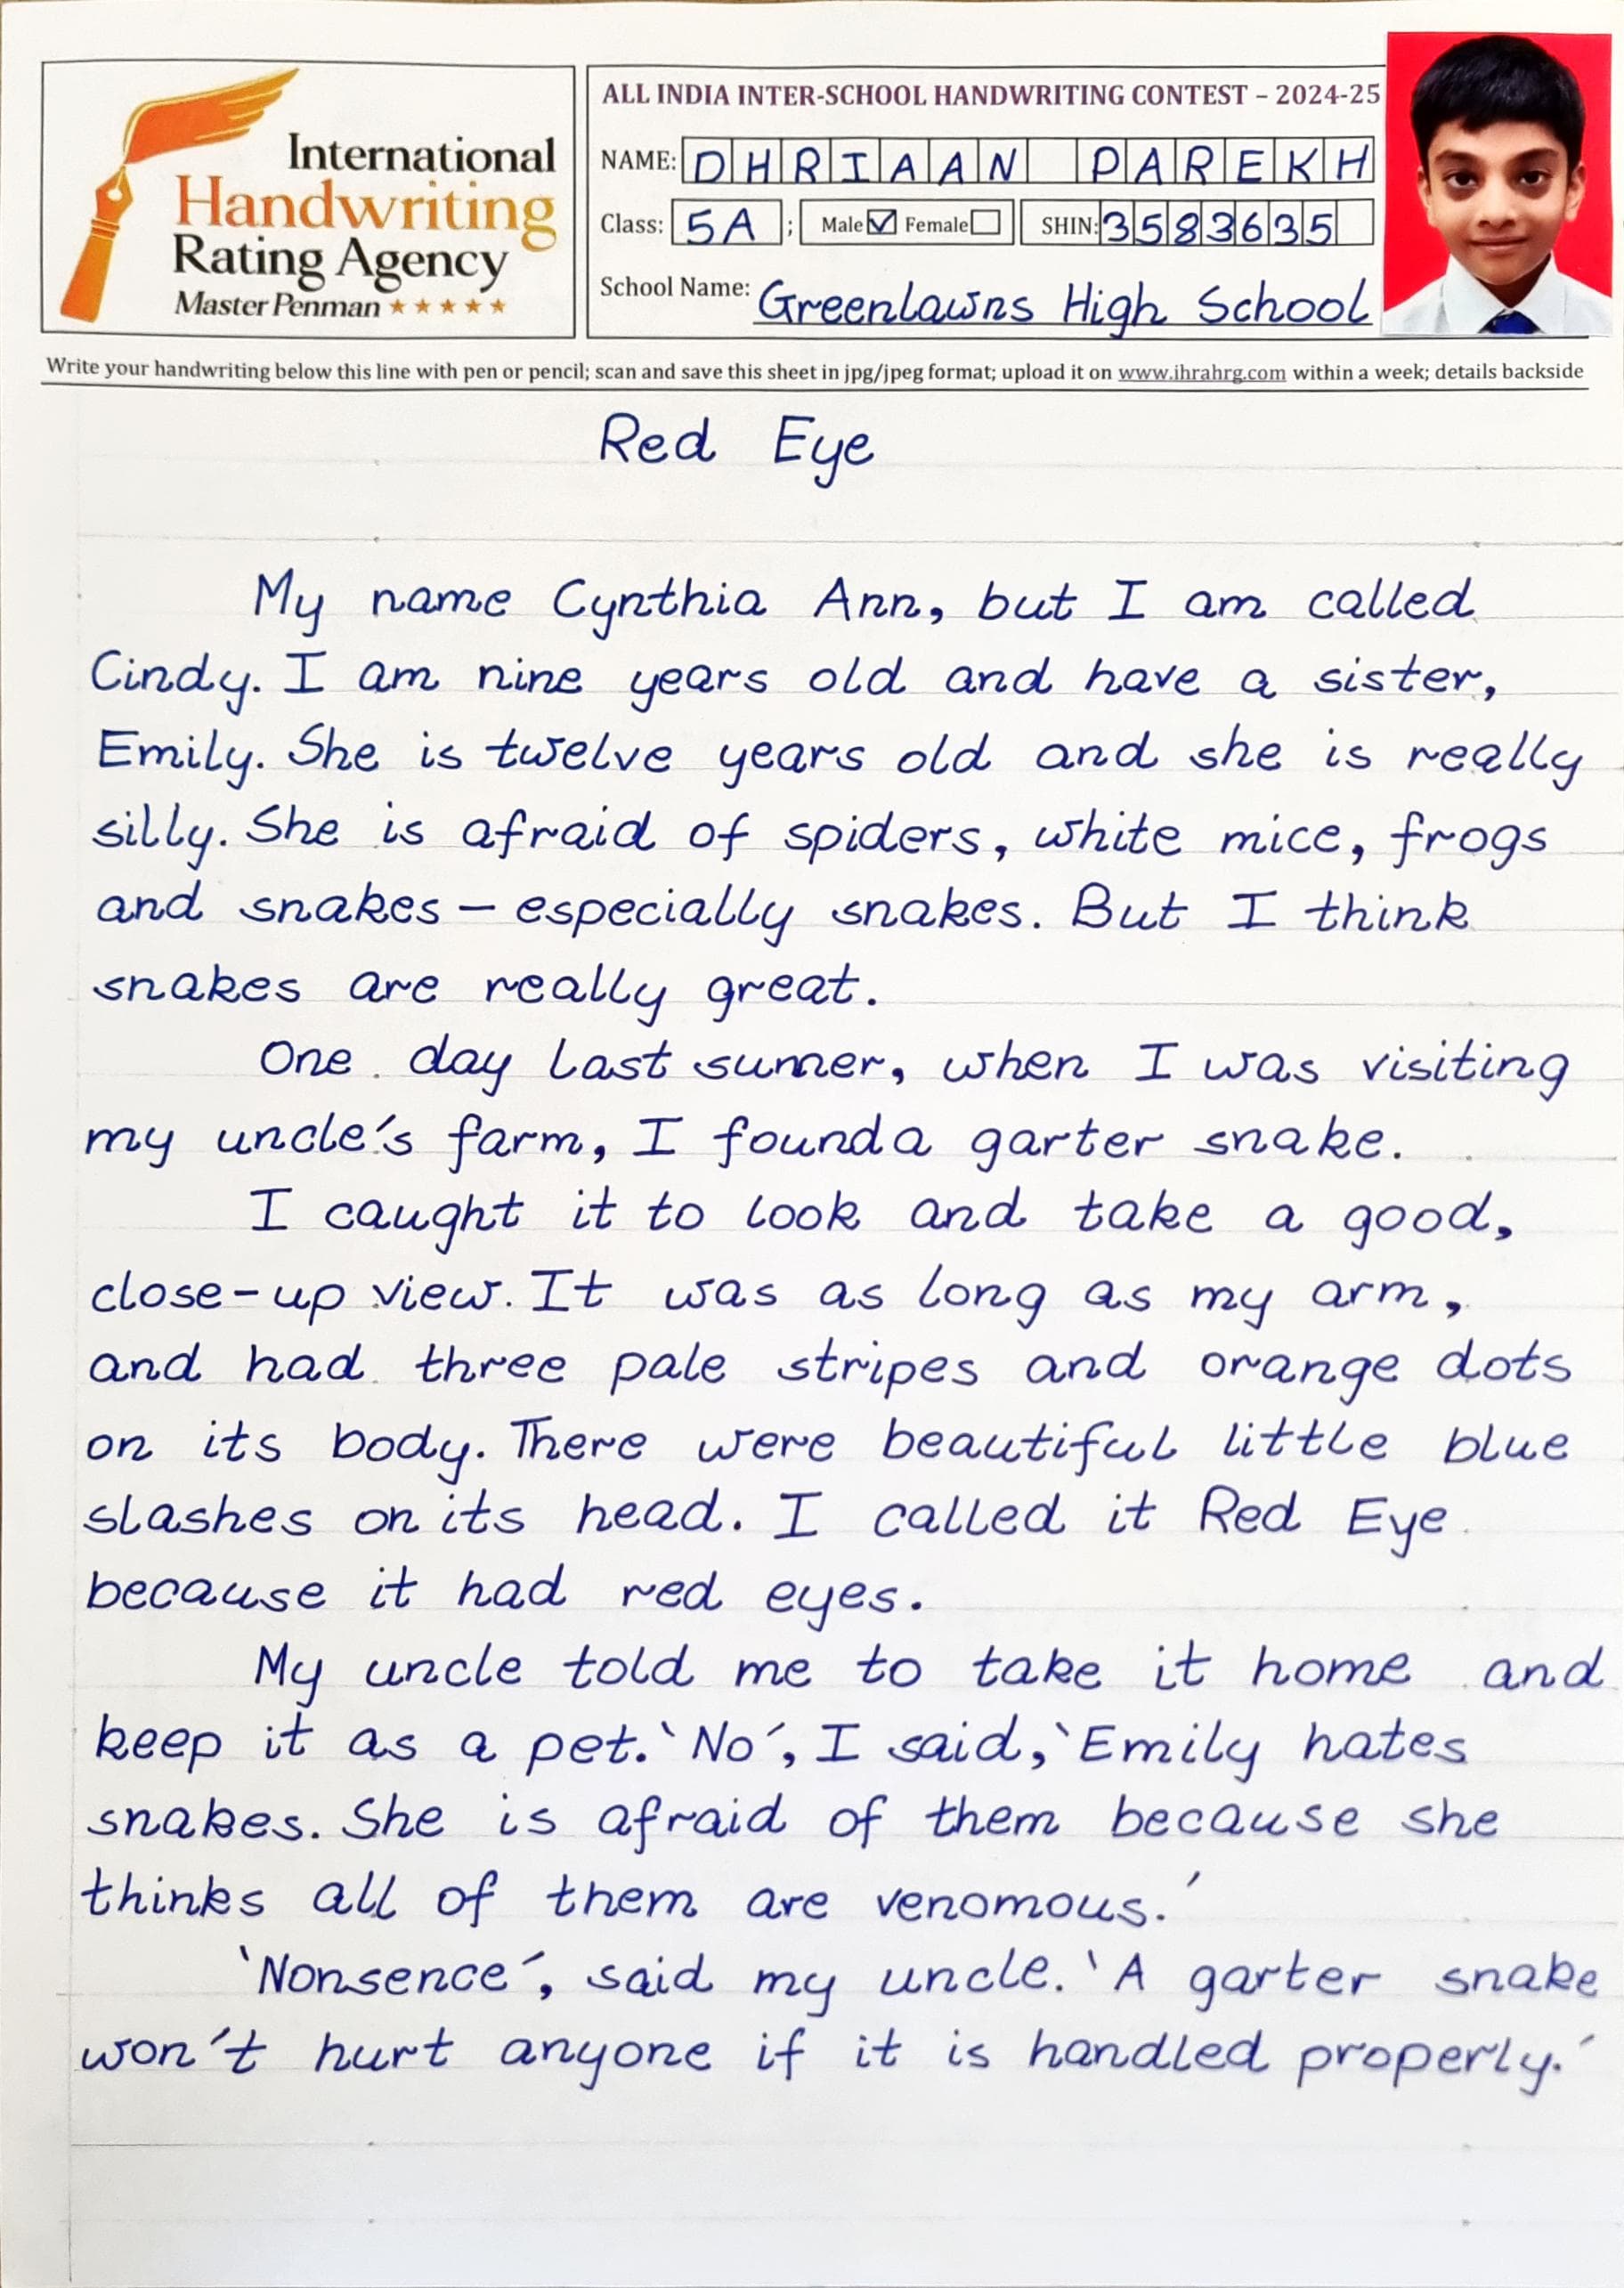 International
Handwriting
Rating Agency
Master Penman ★★★★★
ALL INDIA INTER-SCHOOL HANDWRITING CONTEST – 2024-25
NAME: DHRIAAN PAREKH
Class: 5A ; Male ☑ Female ☐ SHIN: 3583635
School Name: Greenlawns High School
Write your handwriting below this line with pen or pencil; scan and save this sheet in jpg/jpeg format; upload it on www.ihrahrg.com within a week; details backside
Red Eye
My name Cynthia Ann, but I am called
Cindy. I am nine years old and have a sister,
Emily. She is twelve years old and she is really
silly. She is afraid of spiders, white mice, frogs
and snakes – especially snakes. But I think
snakes are really great.
One day last sumer, when I was visiting
my uncle's farm, I found a garter snake.
I caught it to look and take a good,
close-up view. It was as long as my arm,
and had three pale stripes and orange dots
on its body. There were beautiful little blue
slashes on its head. I called it Red Eye
because it had red eyes.
My uncle told me to take it home and
keep it as a pet. ‘No’, I said, ‘Emily hates
snakes. She is afraid of them because she
thinks all of them are venomous.’
‘Nonsence’, said my uncle. ‘A garter snake
won't hurt anyone if it is handled properly.’